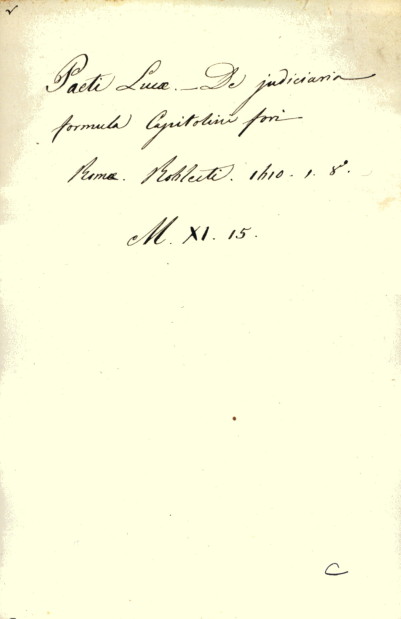 Paeti Lucae. — De judiciaria
formula Capitolini fori
Romae. Robletti. 1610. 1. 8°.
M. XI. 15.
C